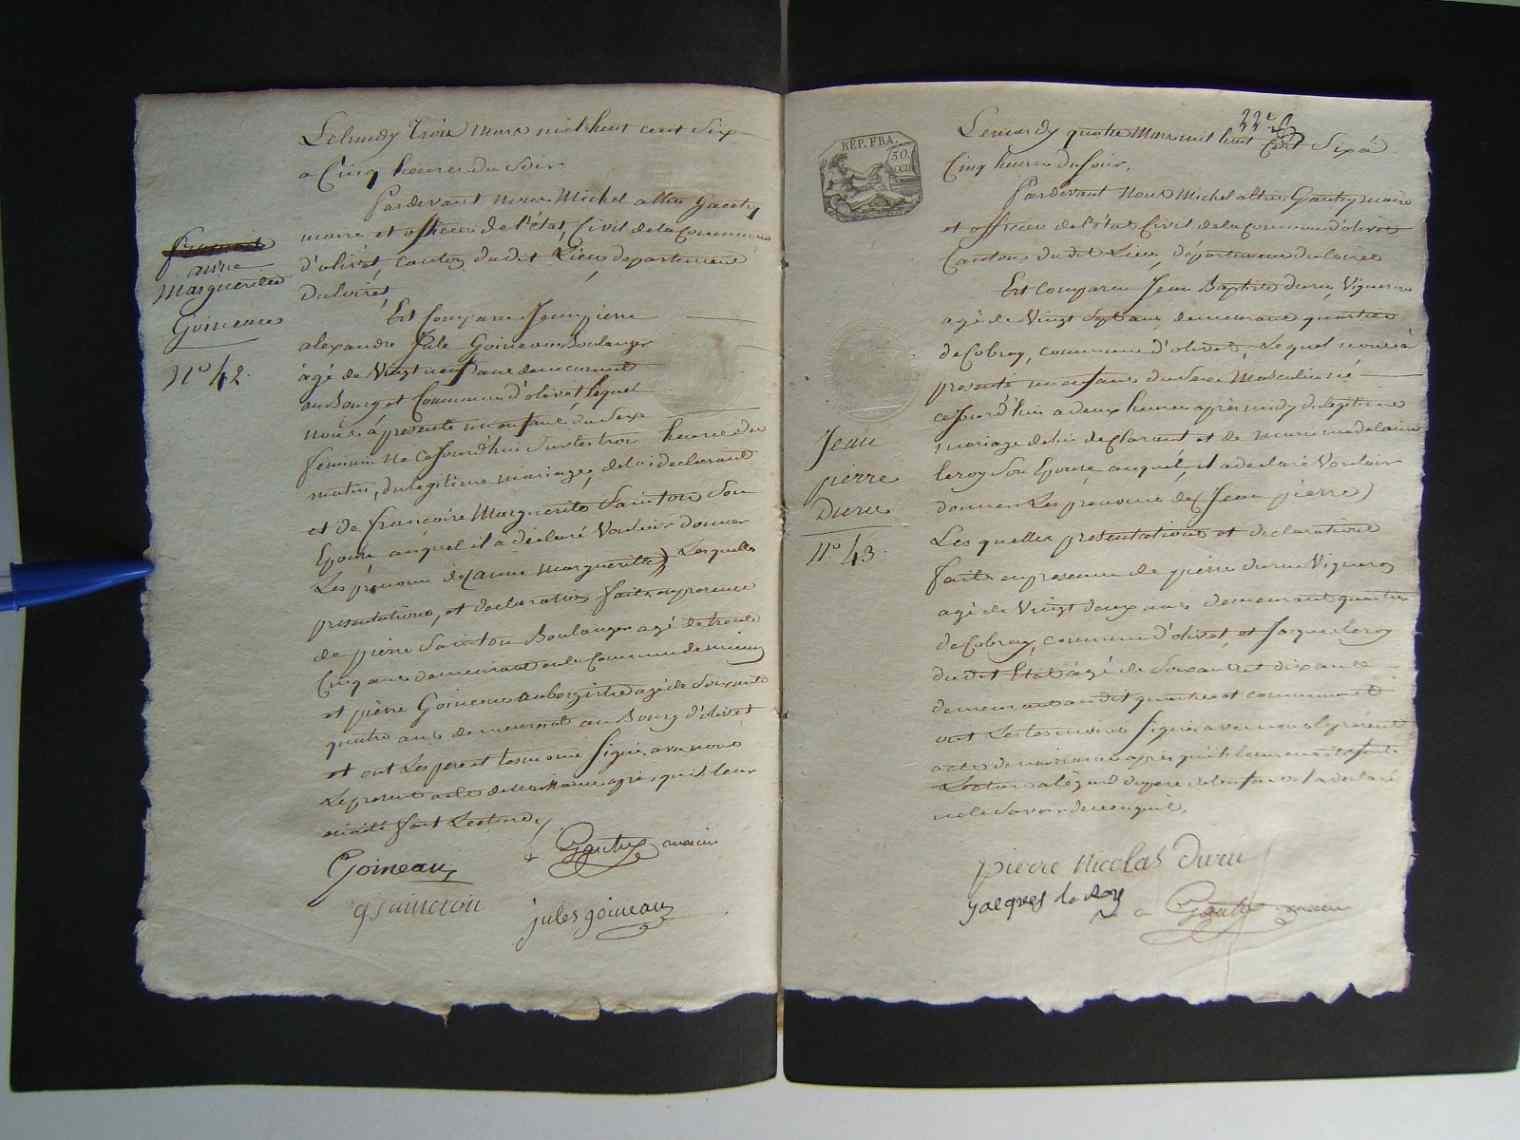 Le lundy trois Mars mil huit cent Six
a Cinq heures du Soir
Pardevant nous Michel altin gautry
maire et officier de l'état Civil de la Commune
d'olivet, canton dudit Lieu, département
du loiret
anne
Marguerite
Goineau
n° 42.
Est Comparu Jean pierre
alexandre Jule Goineau Boulanger
âgé de Vingt neuf ans demeurant
au Bourg et Commune d'olivet lequel
nous à présenté un enfant du Sexe
feminin Né cejourd'hui Sur les trois heures du
matin, du légitime mariage, de lui declarant
et de françoise Marguerite Sainton Son
Epouse auquel il a déclaré Vouloir donner
Les prénoms de (anne marguerite) Lesquelles
presentations, et declaration faits en presence
de pierre Sainton Boulanger agé de trente
Cinq ans demeurant en la Commune de
et pierre Goineau aubergiste agé de Soixante
quatre ans demeurant au Bourg d'olivet
et ont Les pere et temoins Signé avec nous
Le present acte de Naissance après qu'il leur
en a été fait Lecture
Goineau Gautry maire
jules goineau
22e
Le mardy quatre Mars mil huit Cent Six à
Cinq heures du Soir.
RÉP. FRA.
50.
Pardevant Nous Michel altin Gautry maire
et officier de l'état Civil de la Commune d'olivet
Canton du dit Lieu, département du loiret
Est Comparu Jean Baptiste duru, Vigneron
agé de Vingt Sept ans demeurant quartier
de Cobray, commune d'olivet, Lequel nous à
presenté un enfant du Sexe Masculin né
cejourd'hui a deux heures après midy du légitime
mariage de lui declarant et de marie madelaine
leroy Son Epouse auquel, il a déclaré Vouloir
donner Les prénoms de (Jean pierre)
Jean
pierre
Duru
n° 43.
Les quelles presentations et declarations
faits en presence de pierre duru Vigneron
agé de Vingt deux ans demeurant quartier
de Cobray, commune d'olivet, et Jacque Leroy
du dit Etat âgé de Soixante et dix ans
demeurant au dit quartier et commune et
ont Les temoins Signé avec nous le présent
acte de naissance après qu'il leur en a été fait
Lecture a légard du pere de l'enfant il a declaré
ne le Savoir de ce enquis.
pierre nicolas duru
Jacques le Roy
Gautry maire